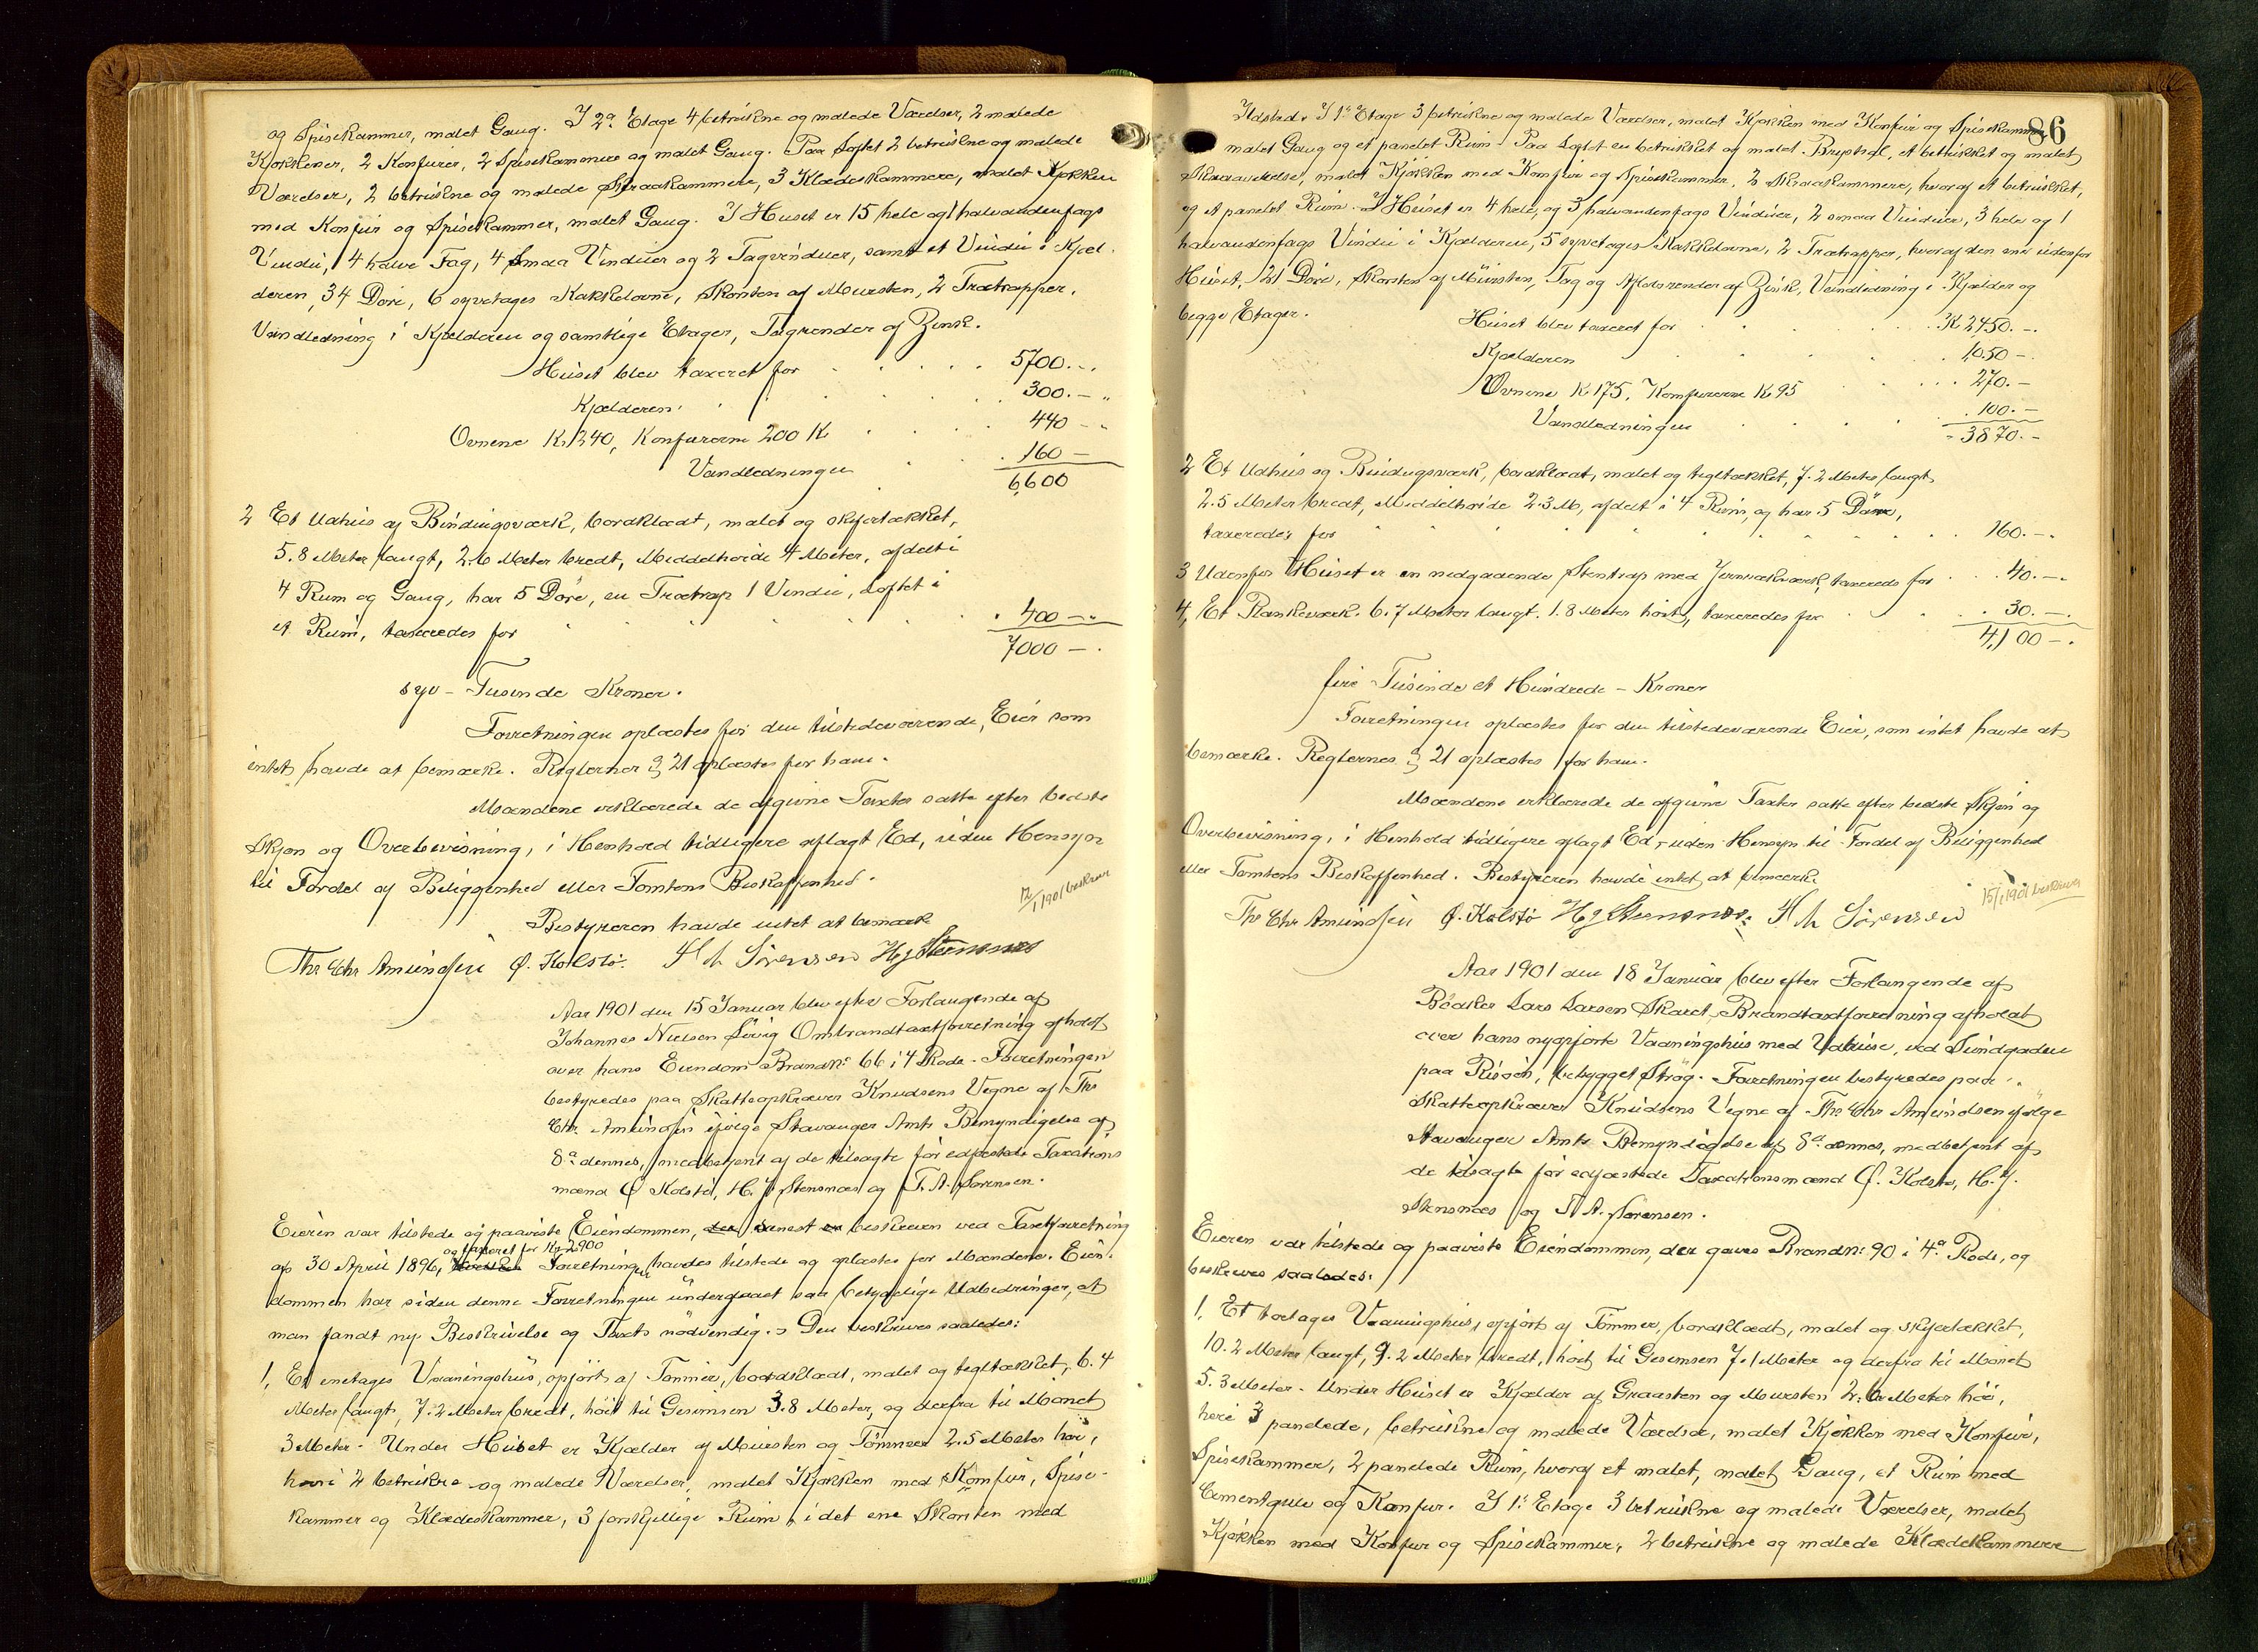 og Spisekammer, malet Gang. I 2a Etage 4 betrukne og malede Værelser, 2 malede
Kjøkkener, 2 Konfurer, 2 Spisekammere og malet Gang. Paa Loftet 2 betrukne og malede
Værelser, 2 betrukne og malede Skraakammere, 3 Klædeskammere, malet Kjøkken
med Konfur og Spisekammer, malet Gang. I Huset er 15 hele og 1 halvandenfags
Vindu, 4 halve Fag, 4 smaa Vinduer og 2 Tagvinduer, samt et Vindu i Kjæl-
deren, 34 Døre, 6 syvetages Kakkelovne, Skorsten af Mursten, 2 Trætrapper,
Vandledning i Kjælderen og samtlige Etager, Tagrender af Zink.
Huset blev taxeret for 5700.-.
Kjælderen 300.-"
Ovnene Kr 240, Konfurerne 200 Kr 440 -"
Vandledningen 160 -
6,600
2 Et Udhus af Bindingsværk, bordklædt, malet og skifertækket,
5.8 Meter langt, 2.6 Meter bredt, Middelhøide 4 Meter, afdelt i
4 Rum og Gang, har 5 Døre, en Trætrap 1 Vindu, Loftet i
et Rum, taxeredes for 400 -"
7000 -.
syv - Tusinde Kroner.
Forretningen oplæstes for den tilstedeværende Eier som
intet havde at bemærke. Reglernes § 21 oplæstes for ham.
Mændene erklærede de afgivne Taxter satte efter bedste
Skjøn og Overbevisning, i Henhold tidligere aflagt Ed, uden Hensyn
til Fordel af Beliggenhed eller Tomtens Beskaffenhed.
12/1 1901 beskrevet
Bestyreren havde intet at bemærke
Ths Chr Amundsen Ø. Kolstø. T A Sørensen H J Stensnæs
Aar 1901 den 15 Januar blev efter Forlangende af
Johannes Nielsen Søvig Ombrandtaxtforretning afholdt
over hans Eiendom Brandn: 66 i 4 Rode. Forretningen
bestyredes paa Skatteopkræver Knudsens Vegne af Ths
Chr. Amundsen ifølge Stavanger Amts Bemyndigelse af
8de dennes, medbetjent af de tilsagte før edfæstede Taxations
mænd Ø Kolstø, H. J. Stensnæs og T. A. Sørensen.
Eieren var tilstede og paaviste Eiendommen, senest beskreven ved Taxtforretning
og taxeret for Kr 2900
af 30 April 1896, Forretningen havdes tilstede og oplæstes for Mændene. Eien-
dommen har siden denne Forretningen undergaaet saa betydelige Udbedringer, at
man fandt ny Beskrivelse og Taxt nødvendig. Den beskrives saaledes:
1, Et enetages Vaaningshus, opført af Tømmer, bordklædt, malet og tegltækket, 6.4
Meter langt, 7.2 Meter bredt, høit til Gesimsen 3.8 Meter, og derfra til Mønet
3 Meter. Under Huset er Kjælder af Mursten og Tømmer 2.5 Meter høi,
heri 2 betrukne og malede Værelser, malet Kjøkken med Komfur, Spise-
kammer og Klædeskammer, 3 forskjellige Rum, i det ene Skorsten med
86
Ildsted. I 1ste Etage 3 betrukne og malede Værelser, malet Kjøkken med Konfur og Spisekammer
malet Gang og et panelet Rum. Paa Loftet en betrukket og malet Brystsal, et betrukket og malet
Skraaværelse, malet Kjøkken med Komfur og Spisekammer, 2 Skraakammere, hvoraf et betrukket,
og et panelet Rum. I Huset er 4 hele, og 3 halvandenfags Vinduer, 2 smaa Vinduer, 3 hele og 1
halvandenfags Vindu i Kjælderen, 5 syvetages Kakkelovne, 2 Trætrapper, hvoraf den ene udenfor
Huset, 21 Døre, Skorsten af Mursten, Tag og Afløbsrender af Zink, Vandledning i Kjælder og
begge Etager.
Huset blev taxeret for K 2450.-.
Kjælderen 1,050 -.
Ovnene K 175. Komfurerne K 95 270.-
Vandledningen 100.-
3870.-
2 Et Udhus og Bindingsværk, bordklædt, malet og tegltækket, 7.2 Meter langt
2.5 Meter bredt, Middelhøide 2.3 M, afdelt i 4 Rum, og har 5 Døre,
taxeredes for 160.-.
3 Udenfor Huset er en nedgaaende Stentrap med Jernrækværk, taxeredes for 40.-.
4, Et Plankeværk 6.7 Meter langt. 1.8 Meter høit, taxeredes for 30.-.
4,100 -.
fire Tusinde et Hundrede - Kroner
Forretningen oplæstes for den tilstedeværende Eier, som intet havde at
bemærke. Reglernes § 21 oplæstes for ham.
Mændene erklærede de afgivne Taxter satte efter bedste Skjøn og
Overbevisning, i Henhold tidligere aflagt Ed, uden Hensyn til Fordel af Beliggenhed
eller Tomtens Beskaffenhed. Bestyreren havde intet at bemærke.
15/1 1901 beskrevet
Ths Chr Amundsen Ø. Kolstø H J Stensnæs T A Sørensen
Aar 1901 den 18 Januar blev efter Forlangende af
Bødker Lars Larsen Skaret, Brandtaxtforretning afholdt
over hans nyopførte Vaaningshus med Udhuse, ved Sundgaden
paa Risøen, bebygget Strøg. Forretningen bestyredes paa
Skatteopkræver Knudsens Vegne af Ths Chr Amundsen ifølge
Stavanger Amts Bemyndigelse af 8de dennes, medbetjent af
de tilsagte før edfæstede Taxationsmænd Ø. Kolstø, H. J.
Stensnæs og T. A. Sørensen.
Eieren var tilstede og paaviste Eiendommen, der gaves Brandn: 90 i 4a Rode, og
beskreves saaledes:
1, Et toetages Vaaningshus, opført af Tømmer, bordklædt, malet og skifertækket,
10.2 Meter langt, 9.2 Meter bredt, høit til Gesimsen 7.1 Meter og derfra til Mønet
5.3 Meter. Under Huset er Kjælder af Graasten og Mursten 2.6 Meter høi,
heri 3 panelede, betrukne og malede Værelser, malet Kjøkken med Komfur,
Spisekammer, 2 panelede Rum, hvoraf et malet, malet Gang, et Rum med
Cementgulv og Konfur. I 1ste Etage 3 betrukne og malede Værelser, malet
Kjøkken med Konfur og Spisekammer, 2 betrukne og malede Klædekammere